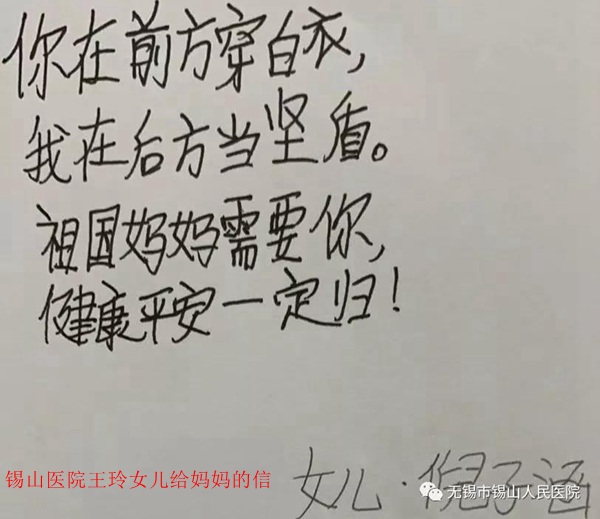 你在前方穿白衣,
我在后方当坚盾。
祖国妈妈需要你,
健康平安一定归!
锡山医院王玲女儿给妈妈的信
女儿·倪子涵
无锡市锡山人民医院